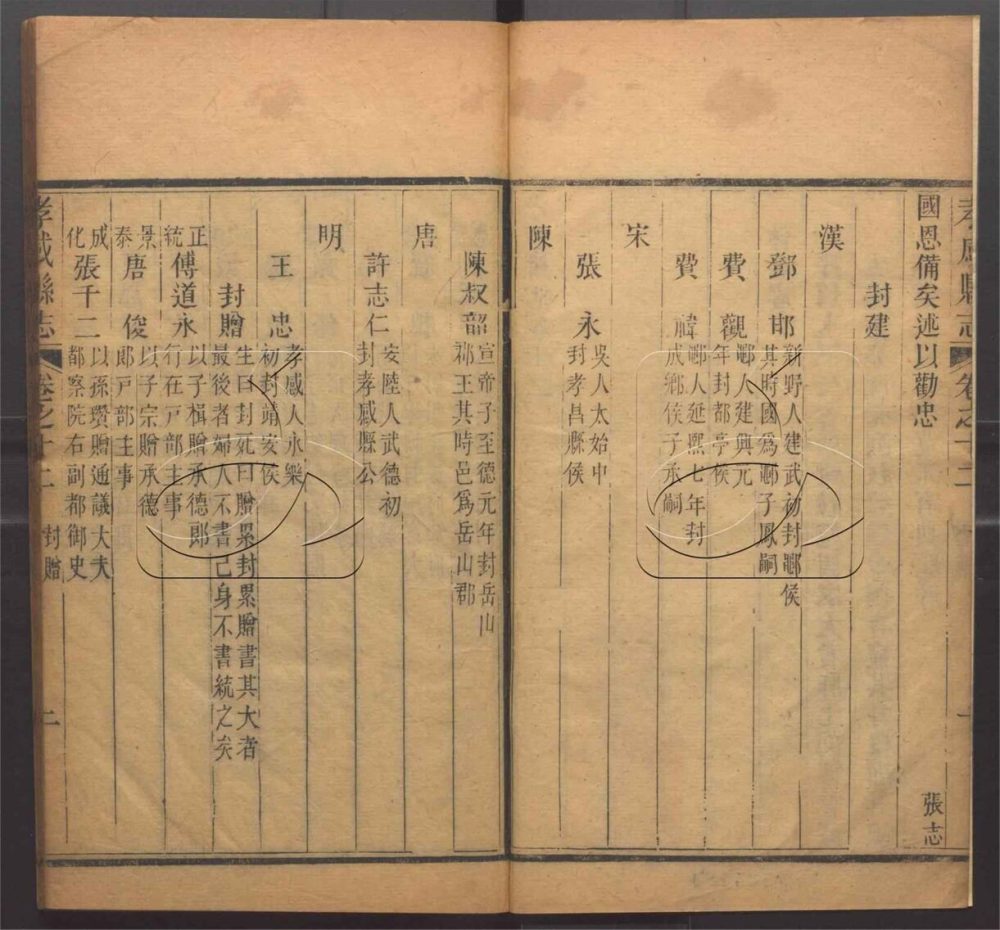 孝感縣志 卷之十二 一
國恩備矣述以勸忠 張志
封建
漢
鄧邯 新野人建武初封鄳侯
其時國爲鄳子鳳嗣
費觀 鄳人建興元
年封都亭侯
費禕 鄳人延熙七年封
成鄉侯子承嗣
宋
張永 吳人太始中
封孝昌縣侯
陳
陳叔韶 宣帝子至德元年封岳山
郡王其時邑爲岳山郡
唐
許志仁 安陸人武德初
封孝感縣公
明
王忠 孝感人永樂
初封靖安侯
封贈 生曰封死曰贈累封累贈書其大者
最後者婦人不書己身不書統之矣
正統 傅道永 以子楫贈承德郎
行在戸部主事
景泰 唐俊 以子宗贈承德
郎戸部主事
成化 張千二 以孫瓚贈通議大夫
都察院右副都御史
孝感縣志 卷之十二 封贈 二